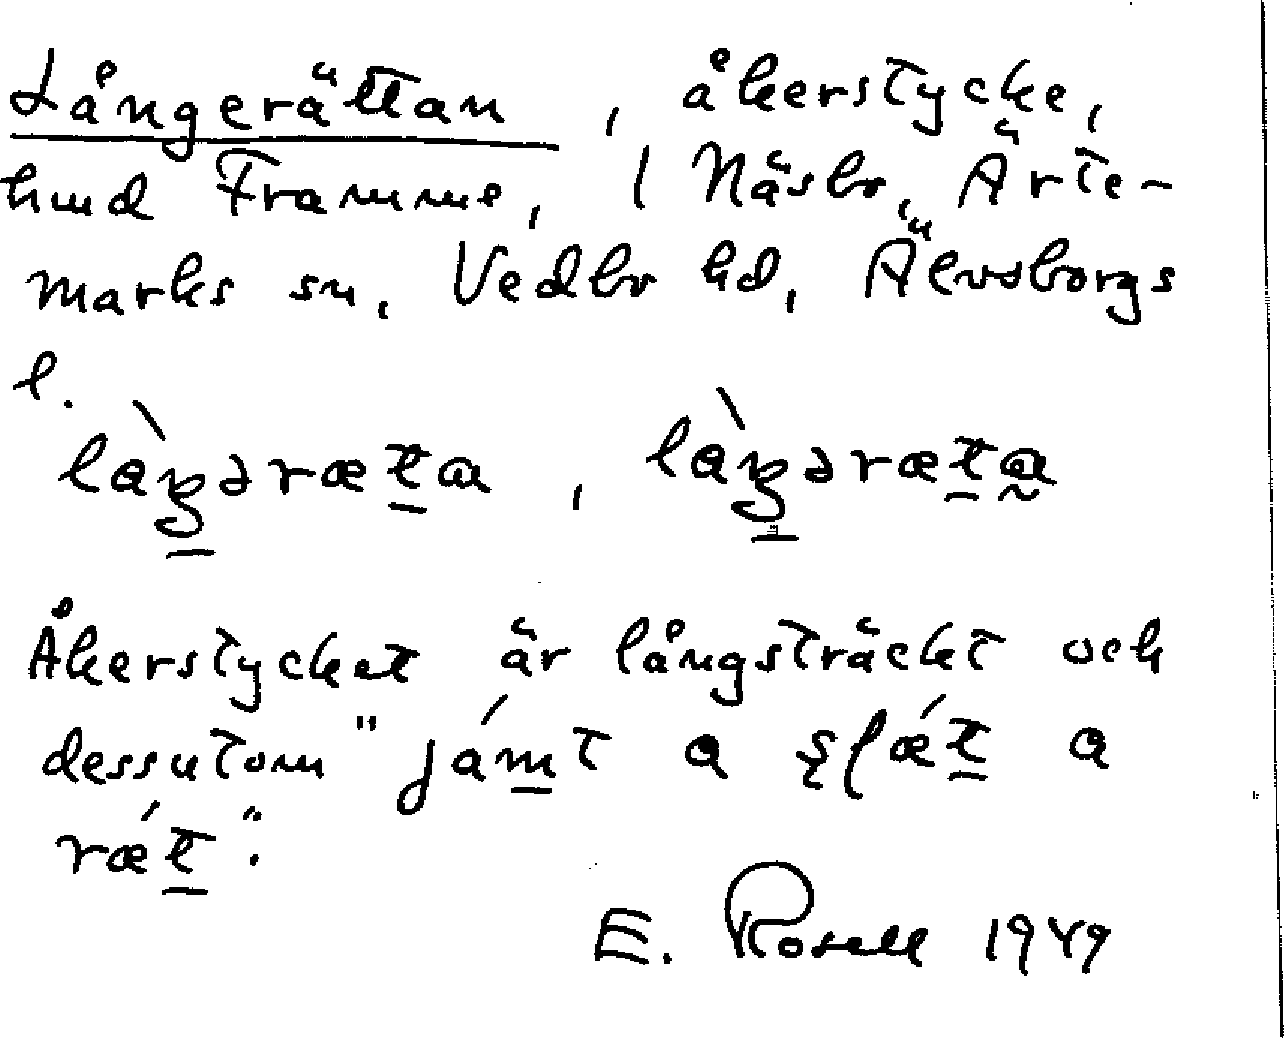 Långerättan, åkerstycke,
hmd Framme, i Näsbo, Ärte-
marks sn, Vedbo hd, Älvsborgs
l.
là̱ŋəræṯɑ, là̱ŋəræṯɑ̰
Åkerstycket är långsträckt och
dessutom "jám̱t a ʂɭǽṯ a
rǽṯ".
E. Rosell 1949